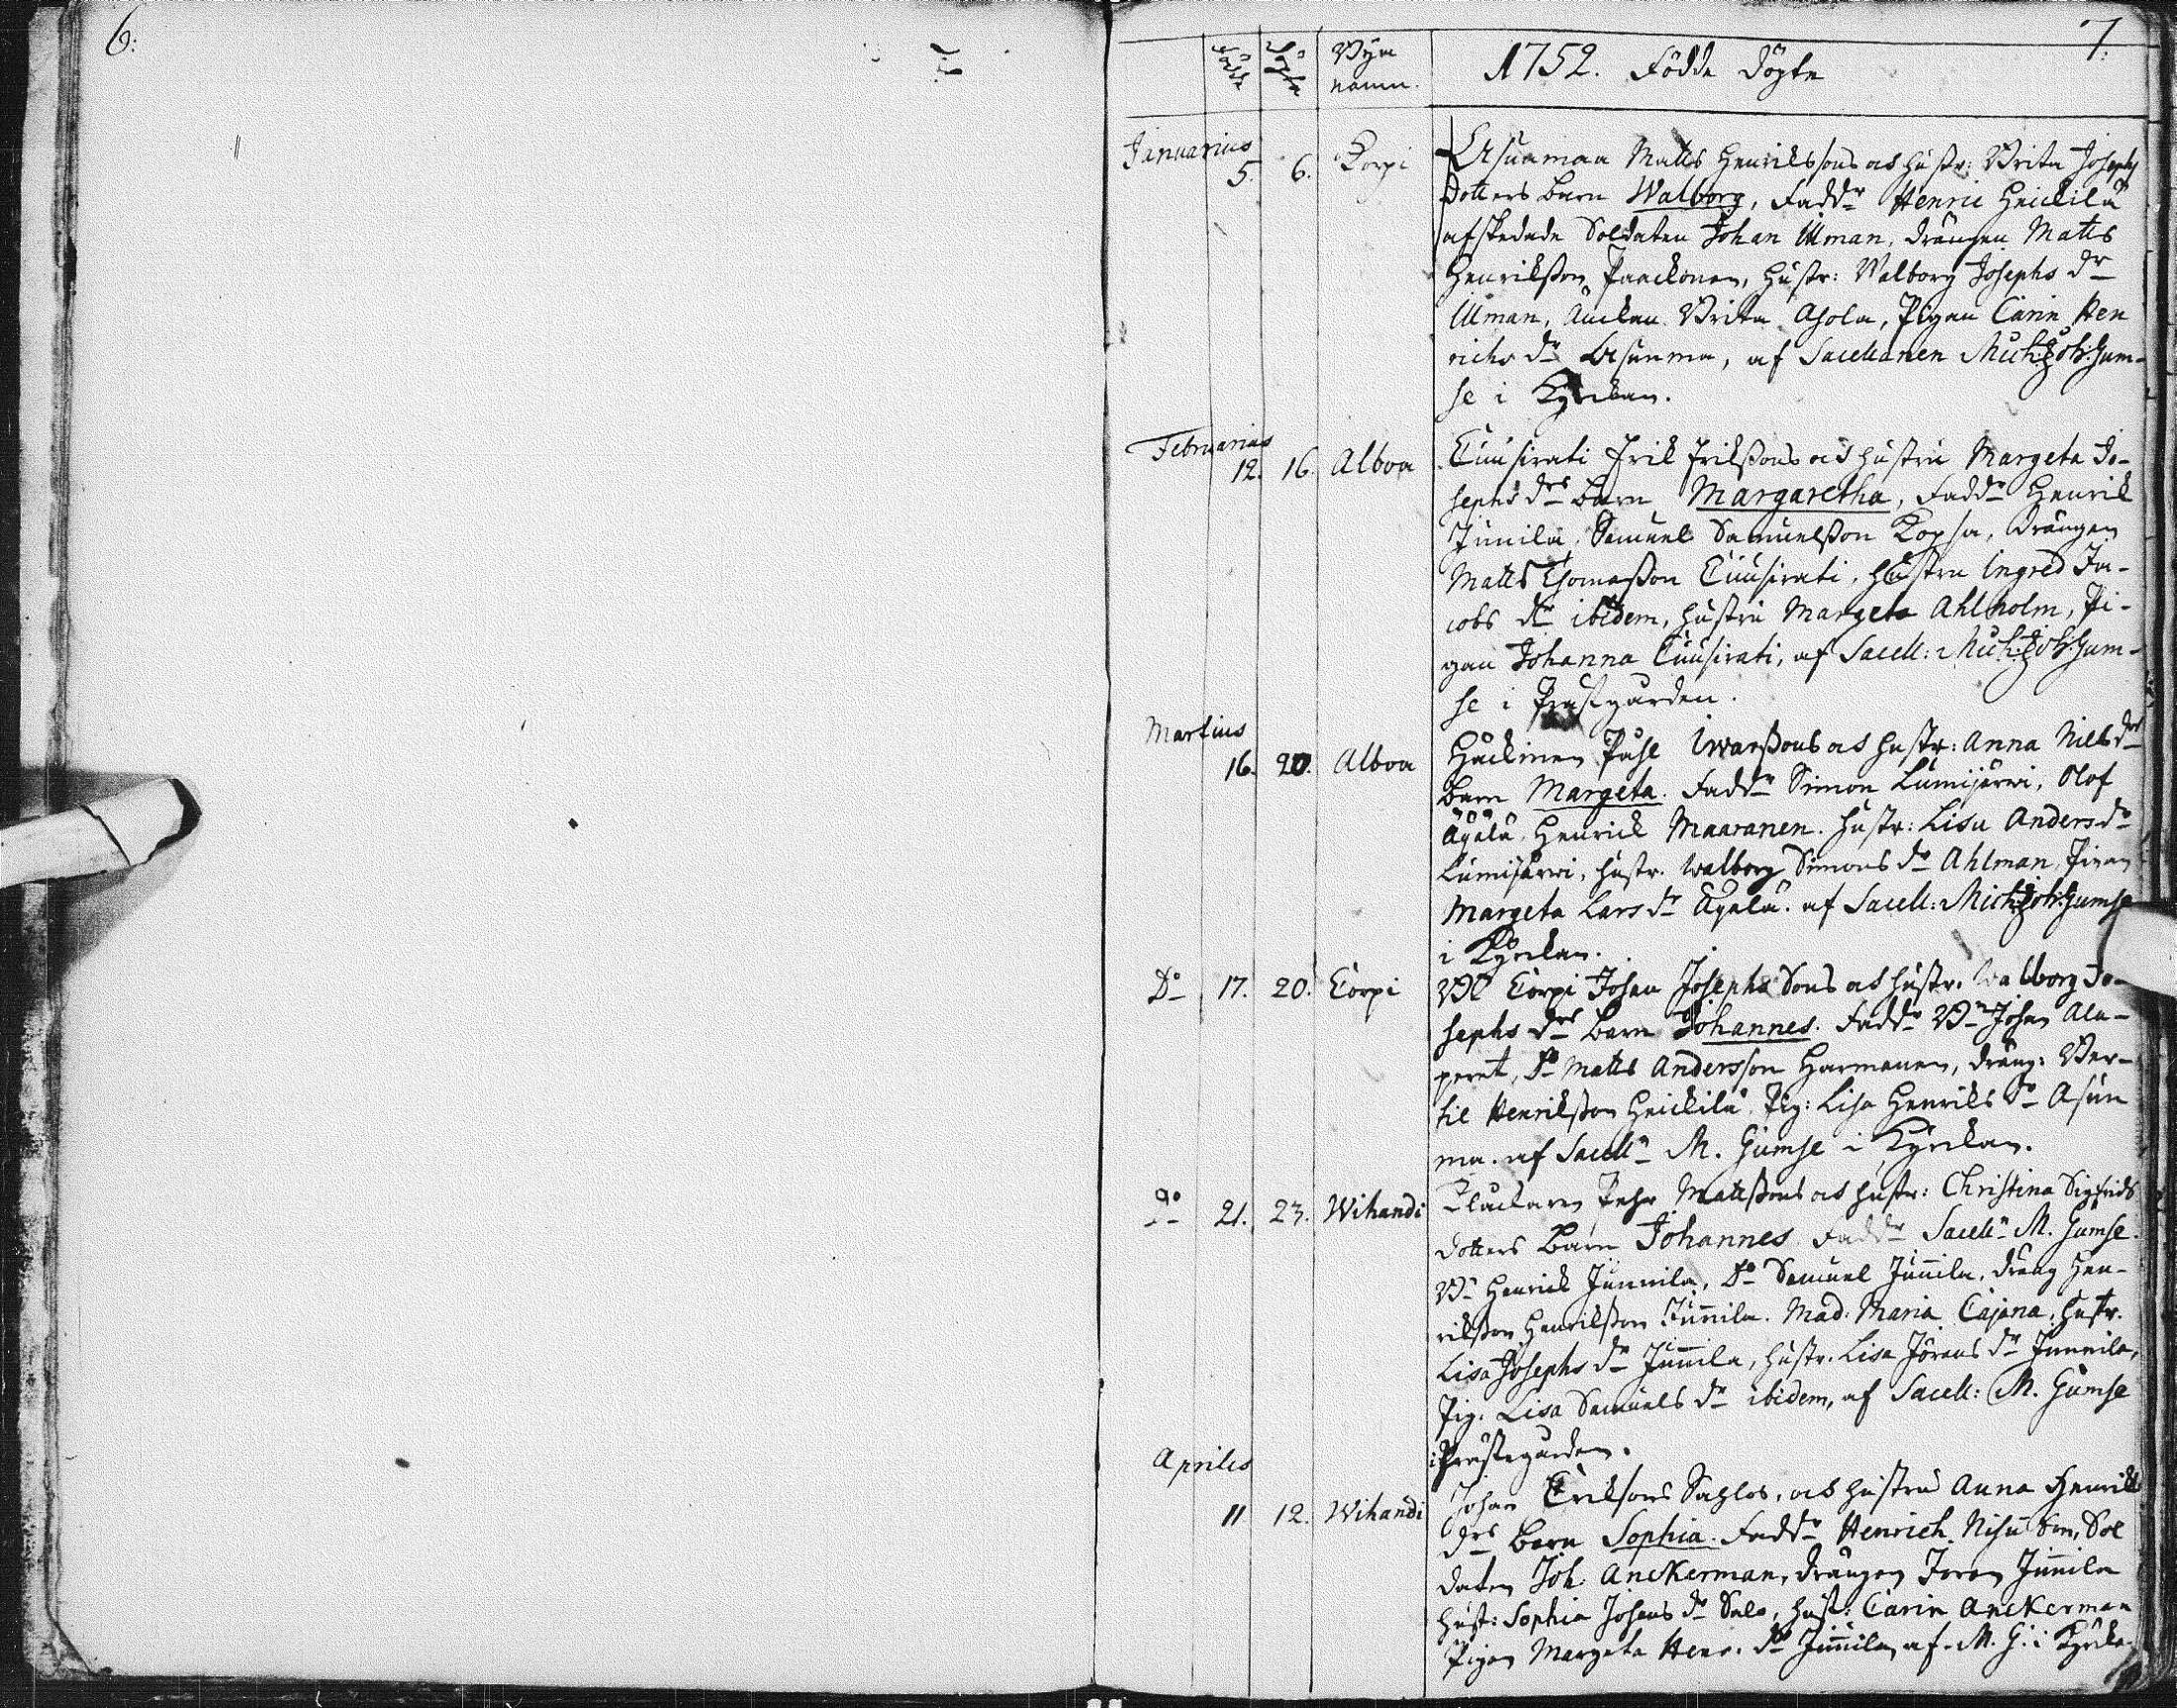 6:
7:
Födde
Döpte
Byn
namn.
1752. Födde Döpte
Januarius
5. 6. Korpi
Matts Henrikssons och hustr: Brita Josephs
dotters barn Walborg, Fadd:r Henric Heickilä
afskedade Soldaten Johan Ulman, drängen Matts
Henriksson Paackonen, hustr: Walborg Josephs d:r
Ulman, Änckan Brita Ahola, Pigan Carin Hen
richs d:r Asunma, af Sacellanen Mich: Joh: Gum-
se i Kyrckan.
Februarius
12. 16. Alboa
Cuusirati Erik Erikssons och hustru Margeta Jo-
sephs d:rs barn Margaretha, Fadd:r Henrik
Junnila, Samuel Samuelsson Kopsa, drängen
Matts Thomasson Cuusirati, hustru Ingred Ja-
cobs d:r ibidem, hustru Margeta Ahlholm, Pi-
gan Johanna Cuusirati, af Sacell: Mich: Joh: Gum-
se i Prästgården.
Martius
16. 20. Alboa
Häckinen Påhl Iwarssons och hustr: Anna Nils d:rs
barn Margeta. Fadd:r Simon Lumijärwi, Olof
Äyälä, Henrick Maaranen. hustr: Lisa Anders d:r
Lumijärwi, hustr. Walborg Simons d:r Ahlman, Pigan
Margeta Lars d:r Äyälä. af Sacell: Mich: Joh: Gumse
i Kyrckan.
D:o 17. 20. Corpi
Corpi Johan Josephs Sons och hustr. Walborg Jo-
sephs d:rs barn Johannes. Fadd:r B:n Johan Ala-
peret, D:o Matts Andersson Harmanen, dräng: Ber-
til Henriksson Heickilä. Pig: Lisa Henriks d:r Asun
ma. af Sacell:n M. Gumse i Kyrckan.
D:o 21. 23. Wihandi
Cläckaren Pehr Mattssons och hustr: Christina Sigfrids
dotters Barn Johannes Fadd:r Sacell:n M. Gumse.
B:n Henrick Junnila, D:o Samuel Junnila, dräng Hen-
riksson Henriksson Junnila. Mad: Maria Cajana, hustr.
Lisa Josephs d:r Junnila, hustr. Lisa Jörans d:r Junnila,
Pig. Lisa Samuels d:r ibidem, af Sacell: M. Gumse
i Prästegården.
Aprilis
11 12. Wihandi
Johan Eriksons Sahlos, och hustru Anna Henriks
d:rs barn Sophia. Fadd:r Henrich Sol
daten Joh: Anckerman, drängen Joran Junnila
hust: Sophia Johans d:r Salo, hust: Carin Anckerman
Pigan Margeta Henr. d:r Junnila af M. G: i Kyrcka